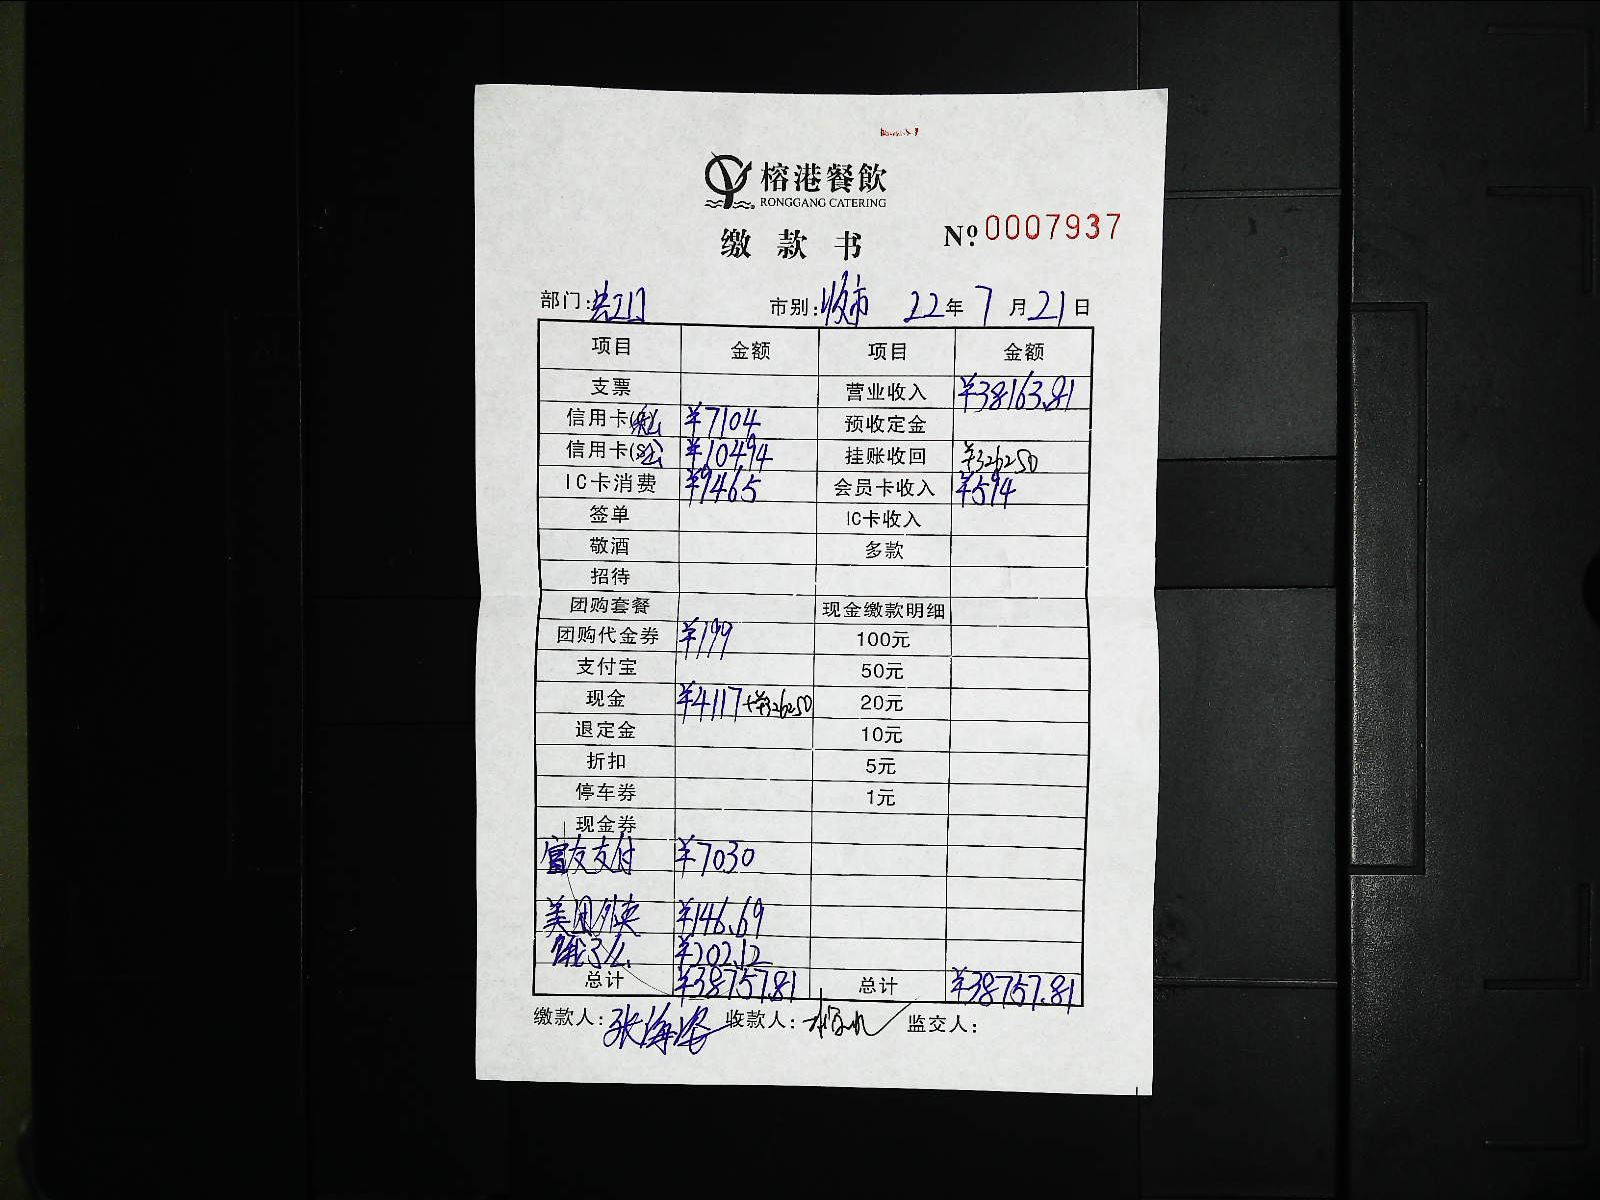 榕港餐飲
RONGGANG CATERING
缴款书
Nº 0007937
部门: 市别: 22年7月21日
项目 金额 项目 金额
支票 营业收入 ¥38163.81
信用卡 ¥7104 预收定金
信用卡 ¥10494 挂账收回 ¥326250
IC卡消费 ¥9465 会员卡收入 ¥594
签单 IC卡收入
敬酒 多款
招待
团购套餐 现金缴款明细
团购代金券 ¥199 100元
支付宝 50元
现金 ¥4117+¥326250 20元
退定金 10元
折扣 5元
停车券 1元
现金券
富友支付 ¥7030
美团外卖 ¥146.69
饿了么 ¥202.12
总计 ¥38757.81 总计 ¥38757.81
缴款人: 张海 收款人: 监交人: